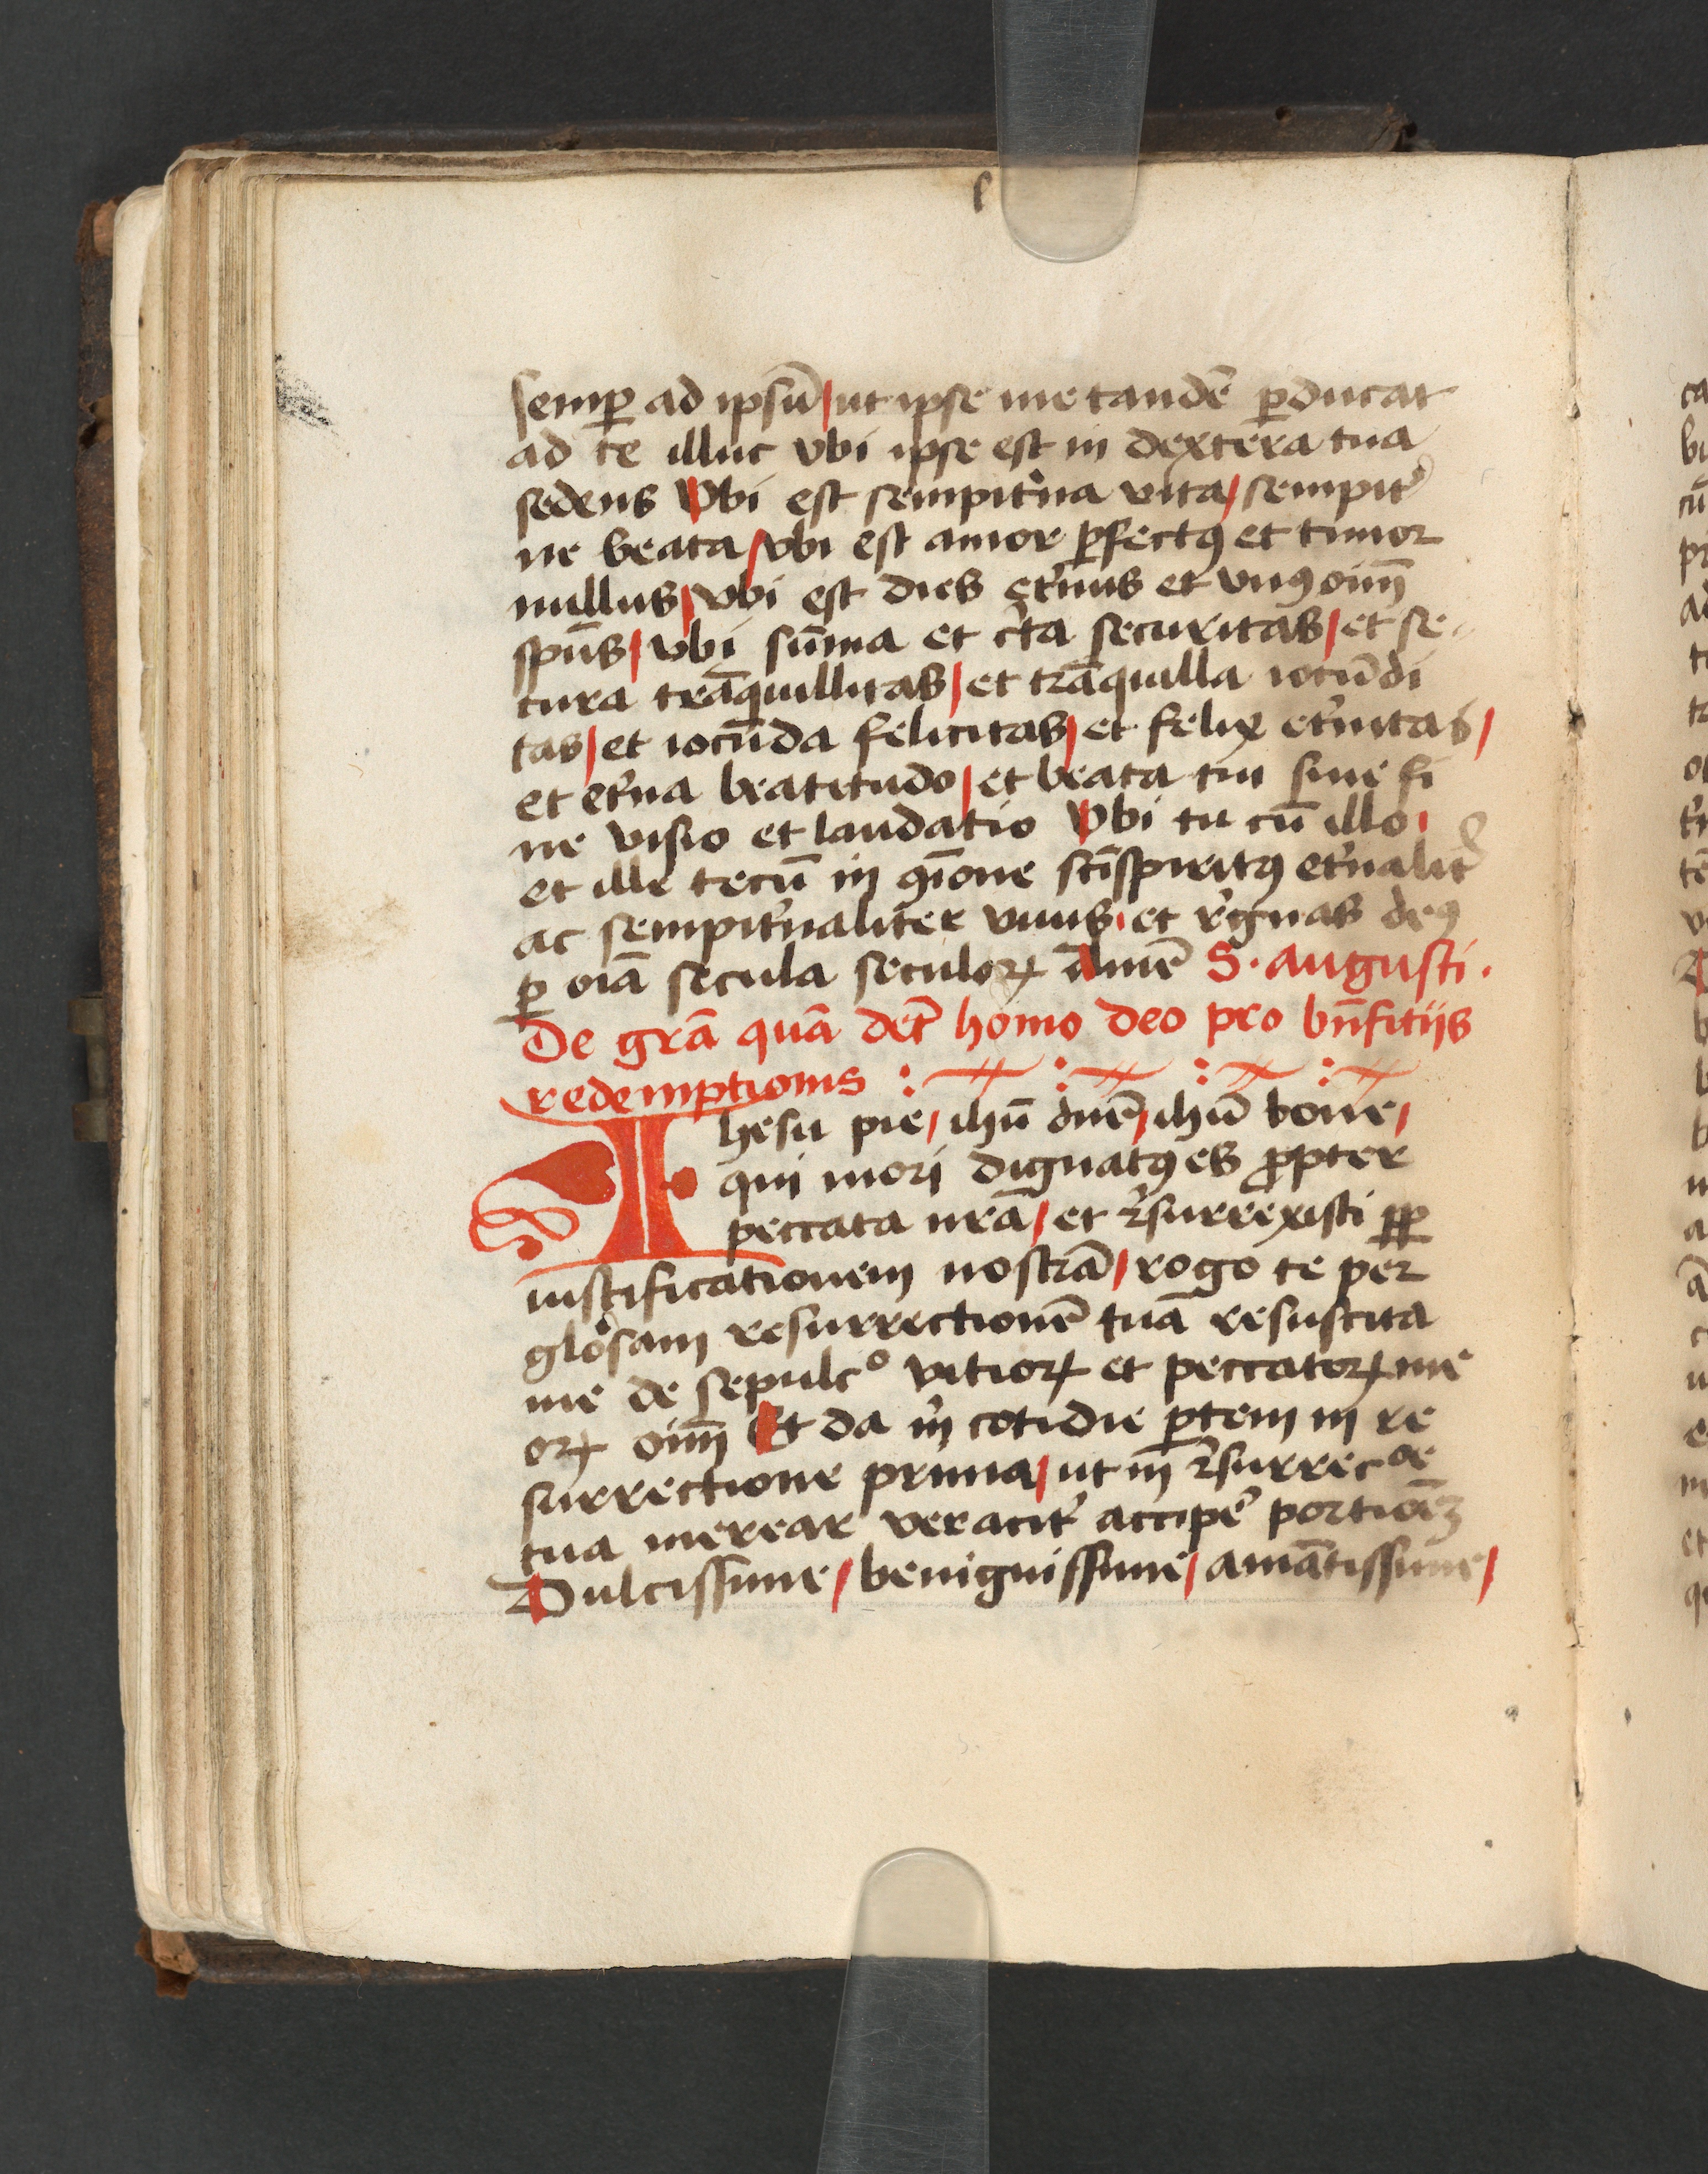 semꝑ ad ipsū / ut ipse me tandē ꝑducat
ad te illuc vbi ipse est in dextera tua
sedens Vbi est sempit'na vita / sempit'
ne beata / vbi est amor ꝑfectꝯ et timor
nullus / vbi est dies et'nus et vnꝯ oim̄
spūs / vbi sūma et c'ta securitas / et se
cura trāquillitas / et trāquilla iocūdi
tas / et iocūda felicitas / et felix et'nitas /
et et'na beatitudo / et beata tui sine fi
ne visio et laudatio Vbi tu cū illo
et ille tecū in ꝯiōne sct̄i spiritꝯ et'nalit'
ac sempit'naliter viuis et r'gnas deꝯ
ꝑ oīa secula seculoꝝ Amē S. Augusti.
De gr̄a quā det' homo deo pro bn̄fitijs
redemptionis :
Ihesu pie / ihū dn̄e / ihū bone /
qui mori dignatꝯ es ꝓpter
peccata nr̄a / et r'surrexisti ꝓp
iustificationem nostrā / rogo te per
glōsam resurrectionē tuā resuscita
me de sepulcº vitioꝝ et peccatoꝝ me
oꝝ oim̄ Et da m̄ cotidie ꝑtem in re
surrectione prima / ut in r'surrecoe
tua merear veracit' accipe' portiōeꝫ
Dulcissime / benignissime / amātissime /